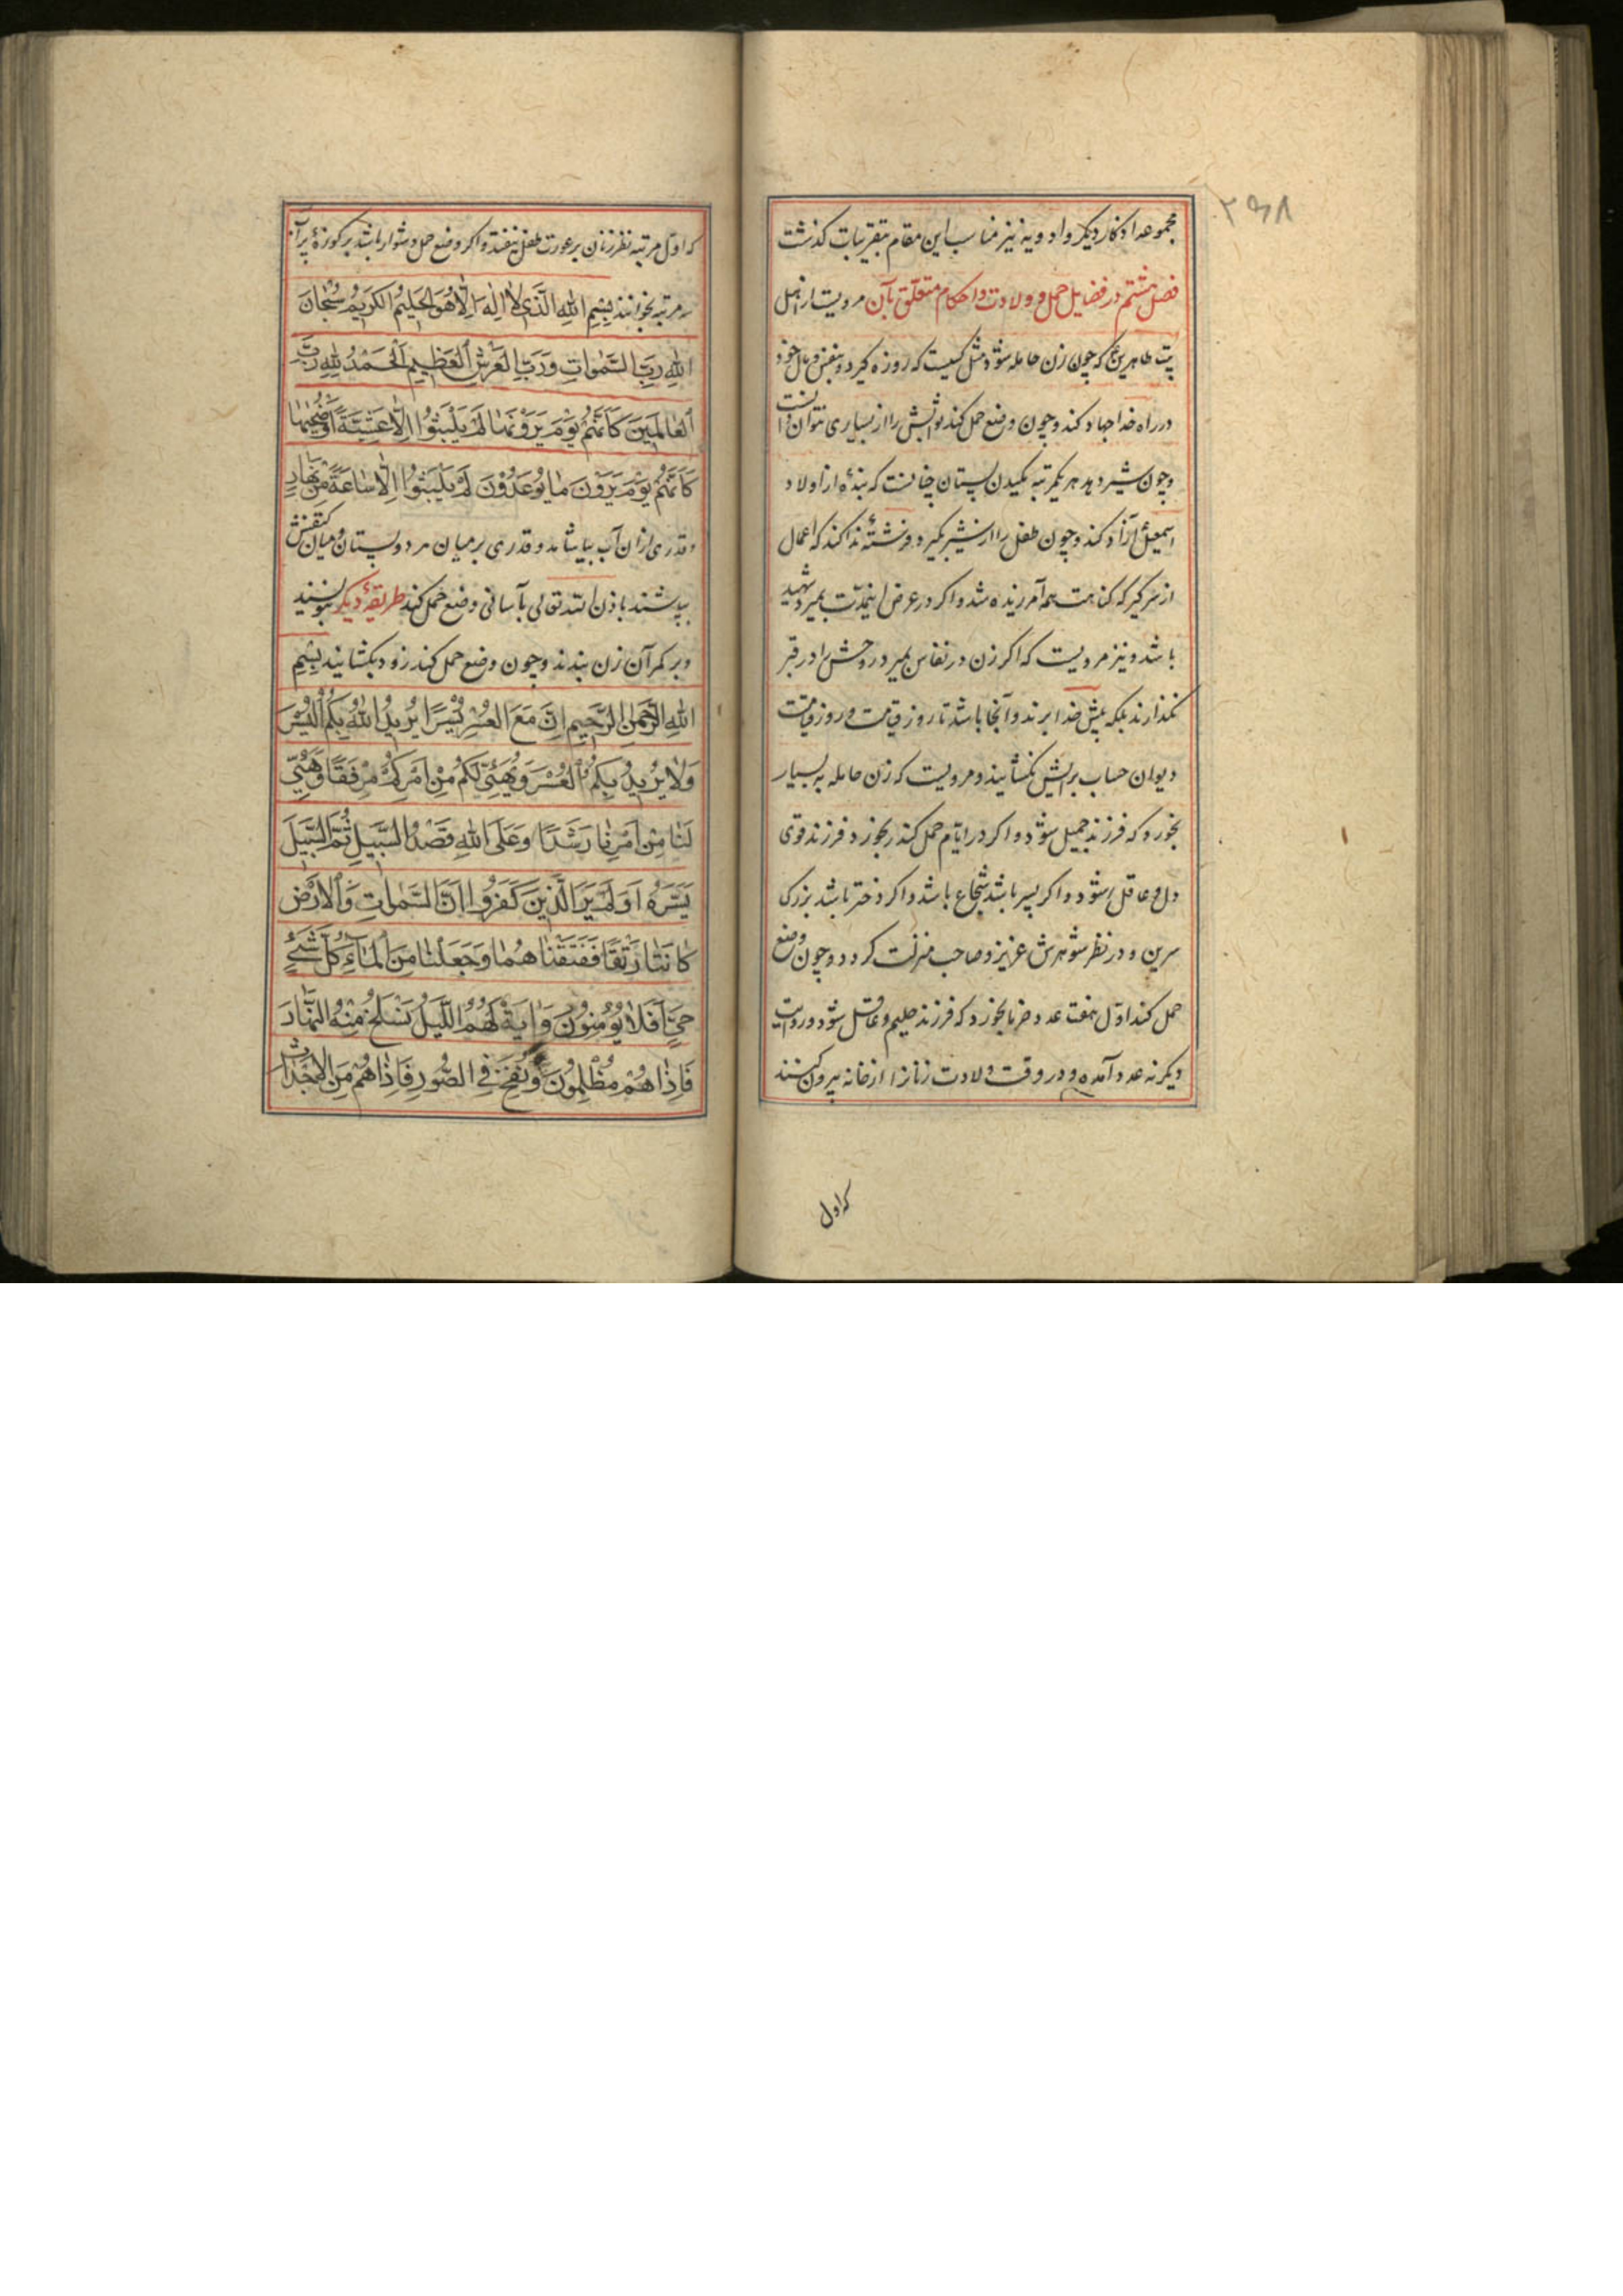 مجموعه اذکار دیکر و ادویه نیز مناسب این مقام بتقریبات کذشت
فصل هشتم در فضایل حمل و ولادت و احکام متعلق بآن مرویست از اهل
بیت طاهرین ع که چون زن حامله شود مثل کسیست که روزه کیرد و بنفس و مال خود
در راه خدا جهاد کند و چون وضع حمل کند ثوابش را از بسیاری نتوان دانست
و چون شیر دهد هر یکمرتبه مکیدن پستان چنانست که بندهٔ از اولاد
اسمعیل آزاد کند و چون طفل را از شیر بکیرد فرشتهٔ ندا کند که اعمال
از سر کیر که کناهت همه آمرزیده شد و اکر در عرض اینمدت بمیرد شهید
باشد و نیز مرویست که اکر زن در نفاس بمیرد روحش را در قبر
نکذارند بلکه پیش خدا برند و آنجا باشد تا روز قیامت و روز قیامت
دیوان حساب برایش نکشایند و مرویست که زن حامله به بسیار
بخورد که فرزند جمیل شود و اکر در ایام حمل کندر بخورد فرزند قوی
دل و عاقل شود و اکر پسر باشد شجاع باشد و اکر دختر باشد بزرک
سرین و در نظر شوهرش عزیز و صاحب منزلت کردد و چون وضع
حمل کند اول هفت عدد خرما بخورد که فرزند حلیم و عاقل شود و در روایت
دیکر نه عدد آمده و در وقت ولادت زنانرا از خانه بیرون کنند
که اول
۲۶۸
که اول مرتبه نظر زنان بر عورت طفل نیفتد و اکر وضع حمل دشوار باشد بر کوزهٔ پر آب
سه مرتبه بخوانند بِسْمِ اللهِ الَّذی لا اِلهَ اِلّا هُوَ الحَلیمُ الکَریمُ سُبْحانَ
اللهِ رَبِّ السَّمواتِ وَرَبِّ العَرْشِ العَظیمِ اَلحَمْدُ لِلّهِ رَبِّ
العالَمینَ کَاَنَّهُمْ یَوْمَ یَرَوْنَها لَمْ یَلْبَثُوا اِلّا عَشِیَّةً اَوْ ضُحیها
کَاَنَّهُمْ یَوْمَ یَرَوْنَ ما یُوعَدُونَ لَمْ یَلْبَثُوا اِلّا ساعَةً مِنْ نَهارٍ
و قدری از ان آب بیاشامد و قدری بر میان هر دو پستان و میان کتفش
بپاشند باذن الله تعالی بآسانی وضع حمل کند طریقهٔ دیکر بنویسند
و بر کمر آن زن بندند و چون وضع حمل کند زود بکشایند بِسْمِ
اللهِ الرَّحْمنِ الرَّحیمِ اِنَّ مَعَ العُسْرِ یُسْرًا یُریدُ اللهُ بِکُمُ الیُسْرَ
وَلا یُریدُ بِکُمُ العُسْرَ وَیُهَیِّئْ لَکُمْ مِنْ اَمْرِکُمْ مِرْفَقًا وَهَیِّئْ
لَنا مِنْ اَمْرِنا رَشَدًا وَعَلَی اللهِ قَصْدُ السَّبیلِ ثُمَّ السَّبیلَ
یَسَّرَهُ اَوَلَمْ یَرَ الَّذینَ کَفَرُوا اَنَّ السَّمواتِ وَالاَرْضَ
کانَتا رَتْقًا فَفَتَقْناهُما وَجَعَلْنا مِنَ الماءِ کُلَّ شَیْءٍ
حَیٍّ اَفَلا یُؤْمِنُونَ وَایَةٌ لَهُمُ اللَّیْلُ نَسْلَخُ مِنْهُ النَّهارَ
فَاِذاهُمْ مُظْلِمُونَ وَنُفِخَ فِی الصُّورِ فَاِذاهُمْ مِنَ الاَجْداثِ